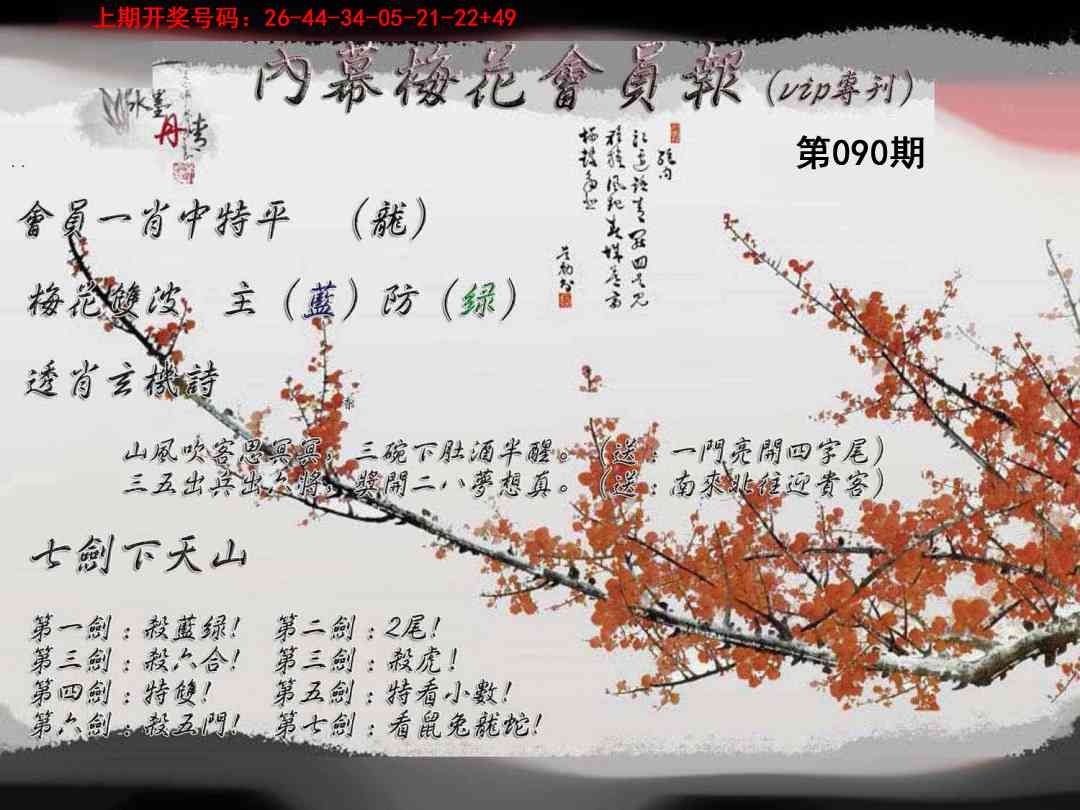 上期开奖号码：26-44-34-05-21-22+49
內幕梅花會員報（vip專刊）
水墨
丹青
第090期
會員一肖中特平 （龍）
梅花雙波 主（藍）防（绿）
透肖玄機詩
山風吹客思冥冥，三碗下肚酒半醒。（送：一門亮開四字尾）
三五出兵出六將，獎開二八夢想真。（送：南來北往迎貴客）
七劍下天山
第一劍：殺藍绿！ 第二劍：2尾！
第三劍：殺六合！ 第三劍：殺虎！
第四劍：特雙！ 第五劍：特看小數！
第六劍：殺五門！ 第七劍：看鼠兔龍蛇！